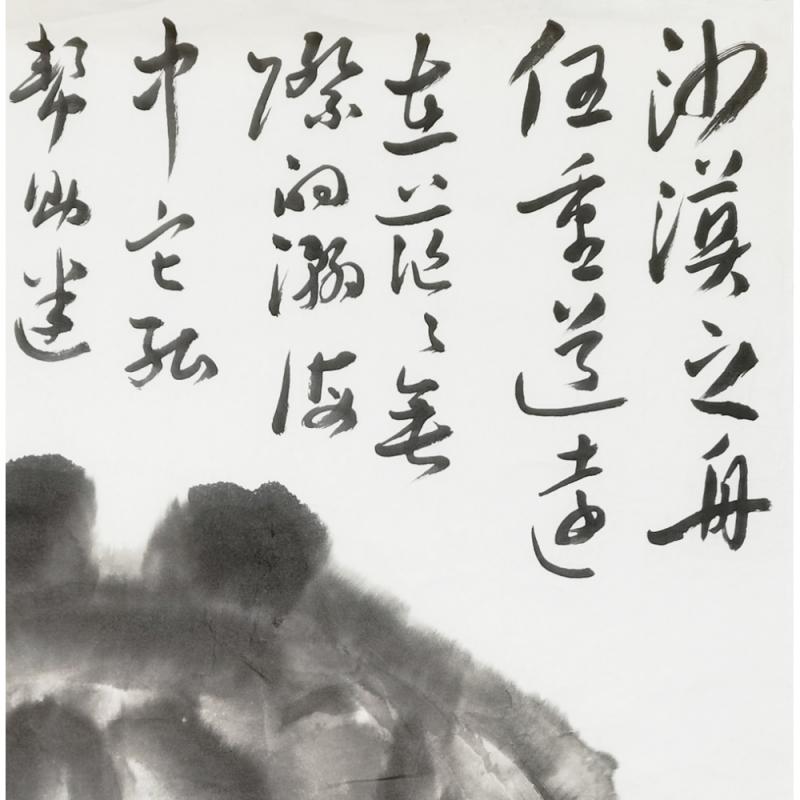 沙漠之舟
任重道遠
在茫々無
際的瀚海
中它能
帮助迷